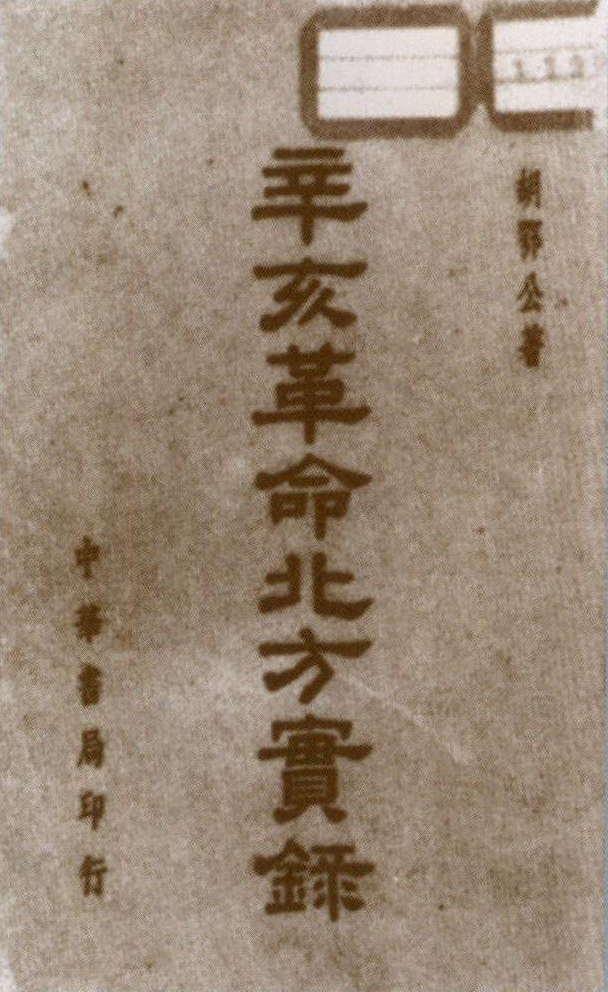 胡鄂公著
辛亥革命北方實錄
中華書局印行